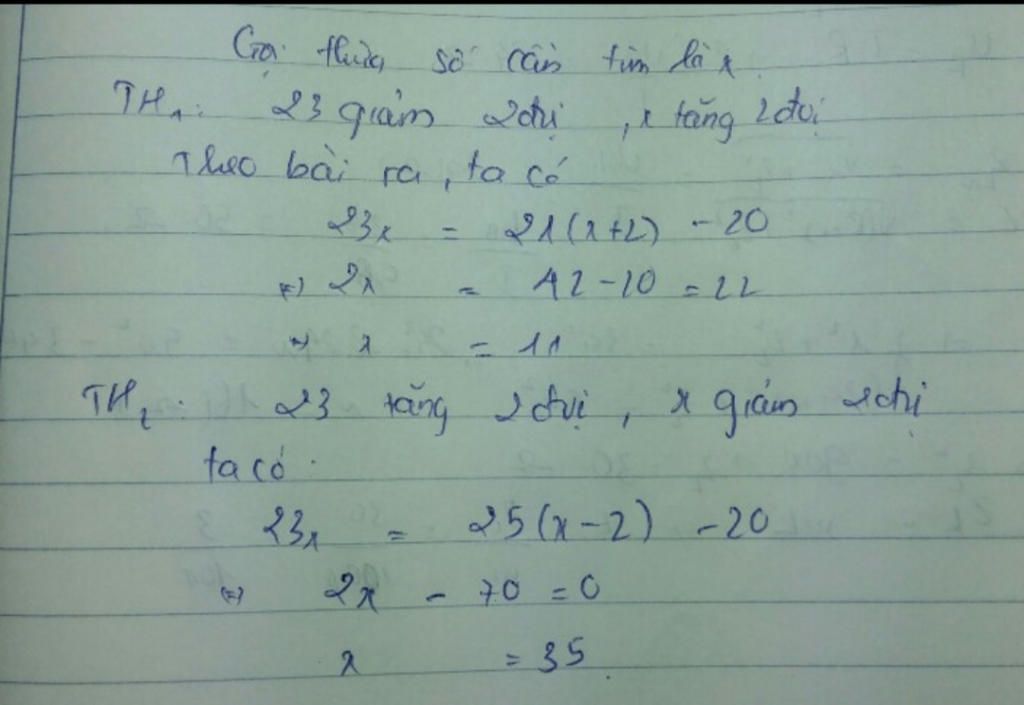 Gọi thừa số cần tìm là x.
TH₁: 23 giảm 2đvị, x tăng 2đvị
Theo bài ra, ta có
23x = 21(x+2) - 20
(=) 2x = 42 - 20 = 22
=) x = 11
TH₂: 23 tăng 2đvị, x giảm 2đvị
ta có.
23x = 25(x-2) - 20
(=) 2x - 70 = 0
x = 35